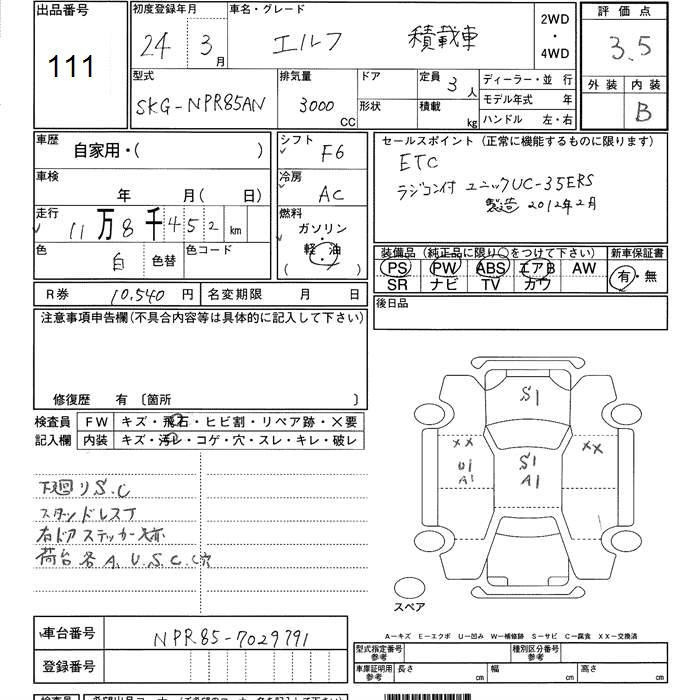 出品番号
111
初度登録年月
24 3月
車名・グレード
エルフ 積載車
2WD
・
4WD
評価点
3.5
外装 内装
B
型式
SKG-NPR85AN
排気量
3000
CC
ドア
形状
定員 3人
積載 kg
ディーラー・並 行
モデル年式 年
ハンドル 左・右
車歴
自家用・( )
車検
年 月( 日)
走行
11万8千452km
色
白
色替
色コード
シフト
F6
冷房
AC
燃料
ガソリン
軽・油
( )
セールスポイント (正常に機能するものに限ります)
ETC
ラジコン付 ユニックUC-35ERS
製造 2012年2月
装備品 (純正品に限り○をつけて下さい)
新車保証書
PS PW ABS エアB AW
SR ナビ TV カワ
有・無
後日品
R券 10.540 円
名変期限 月 日
注意事項申告欄(不具合内容等は具体的に記入して下さい)
修復歴 有 〔箇所 〕
検査員
記入欄
FW キズ・飛石・ヒビ割・リペア跡・×要
内装 キズ・汚レ・コゲ・穴・スレ・キレ・破レ
下廻りS.C
スタンドレス丁
右ドアステッカー跡
荷台各A.U.S.C.穴
S1
XX
U1
A1
S1
A1
XX
スペア
A―キズ E―エクボ U―凹み W―補修跡 S―サビ C―腐食 XX―交換済
車台番号
NPR85-7029791
登録番号
型式指定番号
参考
種別区分番号
参考
車庫証明用
参考
長さ cm
幅 cm
高さ cm